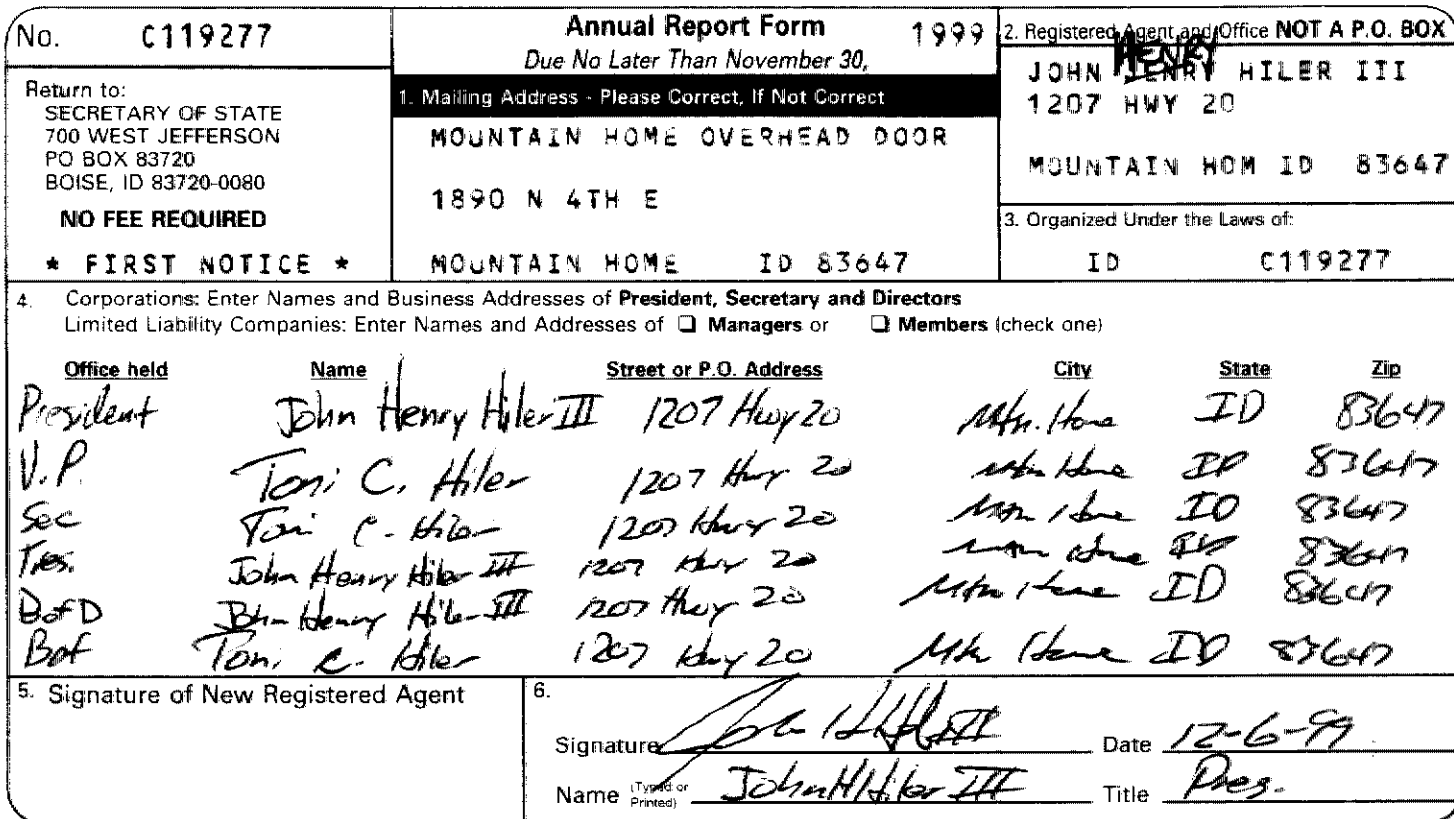 No. C119277
Return to:
SECRETARY OF STATE
700 WEST JEFFERSON
PO BOX 83720
BOISE, ID 83720-0080
NO FEE REQUIRED
* FIRST NOTICE *
Annual Report Form 1999
Due No Later Than November 30,
1. Mailing Address - Please Correct, If Not Correct
MOUNTAIN HOME OVERHEAD DOOR
1890 N 4TH E
MOUNTAIN HOME ID 83647
2. Registered Agent and Office NOT A P.O. BOX
HENRY
JOHN JENRY HILER III
1207 HWY 20
MOUNTAIN HOM ID 83647
3. Organized Under the Laws of:
ID C119277
4. Corporations: Enter Names and Business Addresses of President, Secretary and Directors
Limited Liability Companies: Enter Names and Addresses of ❑ Managers or ❑ Members (check one)
Office held Name Street or P.O. Address City State Zip
President John Henry Hiler III 1207 Hwy 20 Mtn. Home ID 83647
V.P. Toni C. Hiler 1207 Hwy 20 Mtn Home ID 83647
Sec Toni C. Hiler 1207 Hwy 20 Mtn Home ID 83647
Tres. John Henry Hiler III 1207 Hwy 20 Mtn Home ID 83647
B of D John Henry Hiler III 1207 Hwy 20 Mtn Home ID 83647
Bof Toni C. Hiler 1207 Hwy 20 Mtn Home ID 83647
5. Signature of New Registered Agent
6.
Signature John H Hiler III Date 12-6-99
Name (Typed or Printed) John H Hiler III Title Pres.